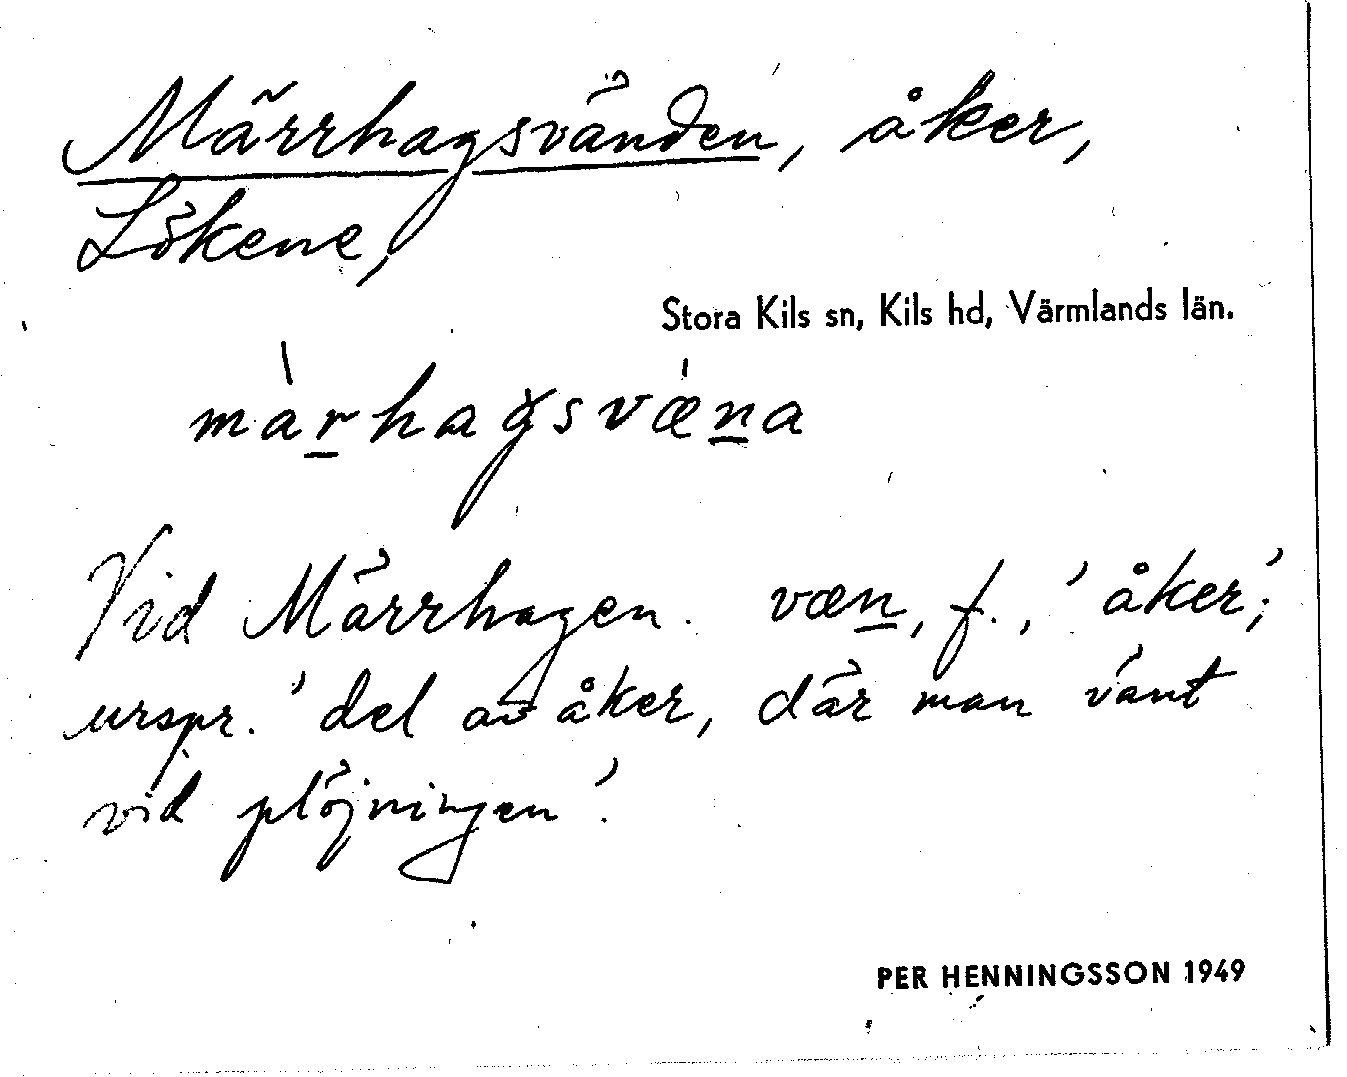 Märrhagsvänden, åker,
Lökene,
Stora Kils sn, Kils hd, Värmlands län.
màrhagsvæna
Vid Märrhagen. væn, f., 'åker';
urspr. 'del av åker, där man vänt
vid plöjningen'.
PER HENNINGSSON 1949